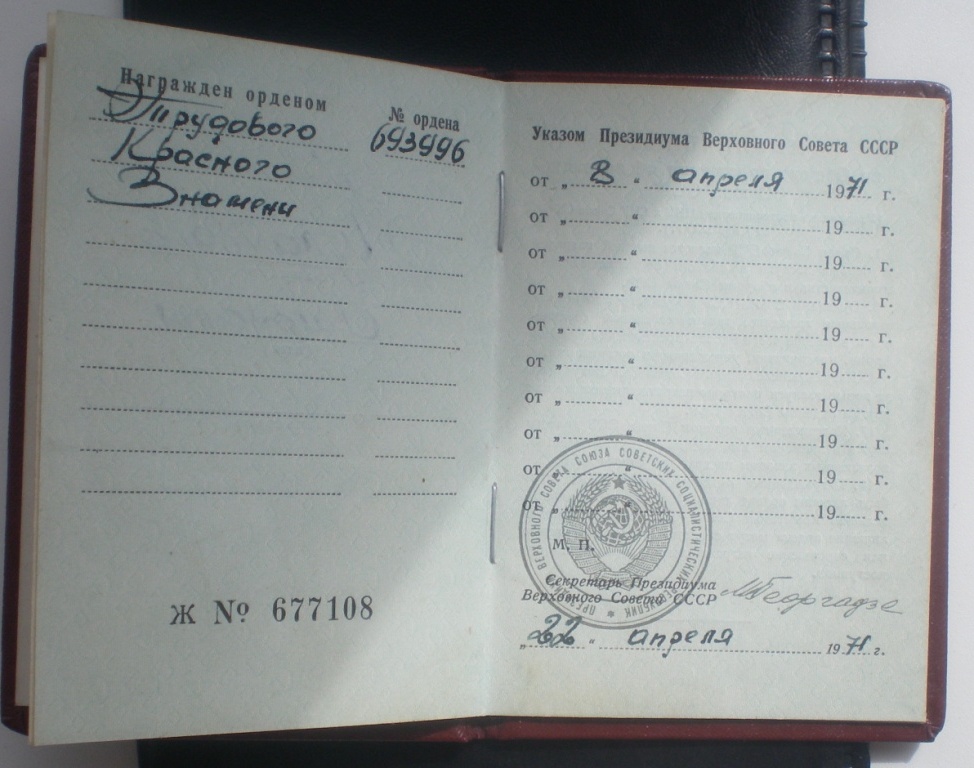 Награжден орденом
№ ордена
Трудового
693996
Красного
Знамени
Ж № 677108
Указом Президиума Верховного Совета СССР
от „ 8 “ апреля 1971 г.
от „ “ 19 г.
от „ “ 19 г.
от „ “ 19 г.
от „ “ 19 г.
от „ “ 19 г.
от „ “ 19 г.
от „ “ 19 г.
от „ “ 19 г.
от „ “ 19 г.
ПРЕЗИДИУМ ВЕРХОВНОГО СОВЕТА СОЮЗА СОВЕТСКИХ СОЦИАЛИСТИЧЕСКИХ РЕСПУБЛИК
М. П.
Секретарь Президиума
Верховного Совета СССР
МГеоргадзе
„ 22 “ апреля 1971 г.